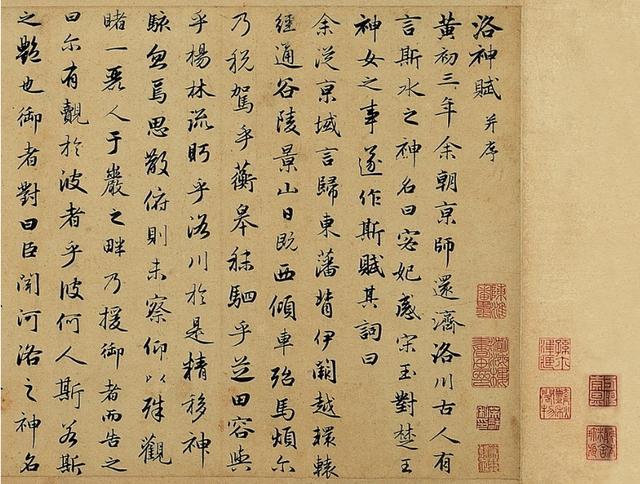 洛神賦 并序
黄初三年余朝京師還濟洛川古人有
言斯水之神名曰宓妃感宋玉對楚王
神女之事遂作斯賦其詞曰
余從京域言歸東藩背伊闕越轘轅
經通谷陵景山日既西傾車殆馬煩尔
乃税駕乎蘅皋秣駟乎芝田容與
乎楊林流眄乎洛川於是精移神
駭忽焉思散俯則未察仰以殊觀
睹一麗人于巖之畔乃援御者而告之
曰尔有覿於彼者乎彼何人斯若斯
之艷也御者對曰臣聞河洛之神名